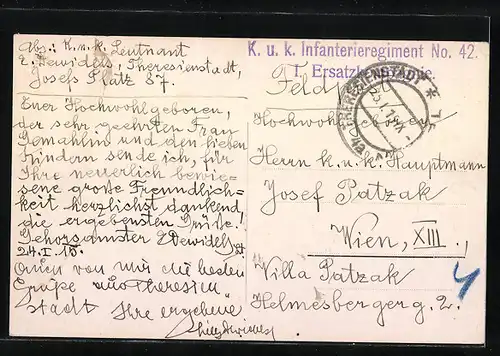 Abs: K.u.k. Leutnant
E. Dewidels, Theresienstadt,
Josefs Platz 87.
Euer Hochwohlgeboren,
der sehr geehrten Frau
Gemahlin und den lieben
Kindern sende ich, für
Ihre neuerlich bewie-
sene große Freundlich-
keit herzlichst dankend,
die ergebensten Grüße.
Gehorsamster EDewidels
24.I.18.
Auch von mir die besten
Grüße aus Theresien
stadt Ihre ergebene
K. u. k. Infanterieregiment No. 42.
Ersatzkompagnie.
THERESIENSTADT
Hochwohlgeboren
Herrn k.u.k. Hauptmann
Josef Patzak
Wien, XIII.,
Villa Patzak
Helmesbergerg. 2.